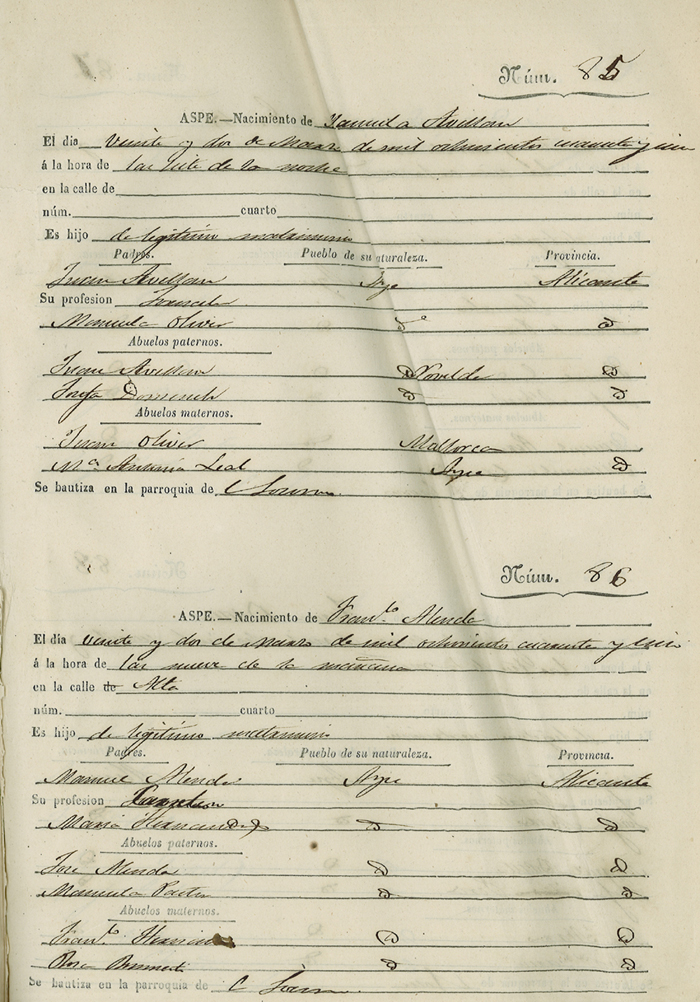 Núm. 85
ASPE.—Nacimiento de Manuela Avellan
El dia veinte y dos de Marzo de mil ochocientos cuarenta y uno
á la hora de las siete de la noche
en la calle de
núm. cuarto
Es hijo de legitimo matrimonio
Padres. Pueblo de su naturaleza. Provincia.
Juan Avellan Aspe Alicante
Su profesion
Manuela Oliver
Abuelos paternos.
Juan Avellan Novelda
Josefa Domenech
Abuelos maternos.
Juan Oliver Mallorca
Mª Antonia Leal Aspe
Se bautiza en la parroquia de
Núm. 86
ASPE.—Nacimiento de Fran.co
El dia veinte y dos de Marzo de mil ochocientos cuarenta y uno
á la hora de las nueve de la mañana
en la calle de Alta
núm. cuarto
Es hijo de legitimo matrimonio
Padres. Pueblo de su naturaleza. Provincia.
Manuel Aspe Alicante
Su profesion
Maria Hernandez
Abuelos paternos.
Jose
Manuela Pastor
Abuelos maternos.
Fran.co
Rosa
Se bautiza en la parroquia de